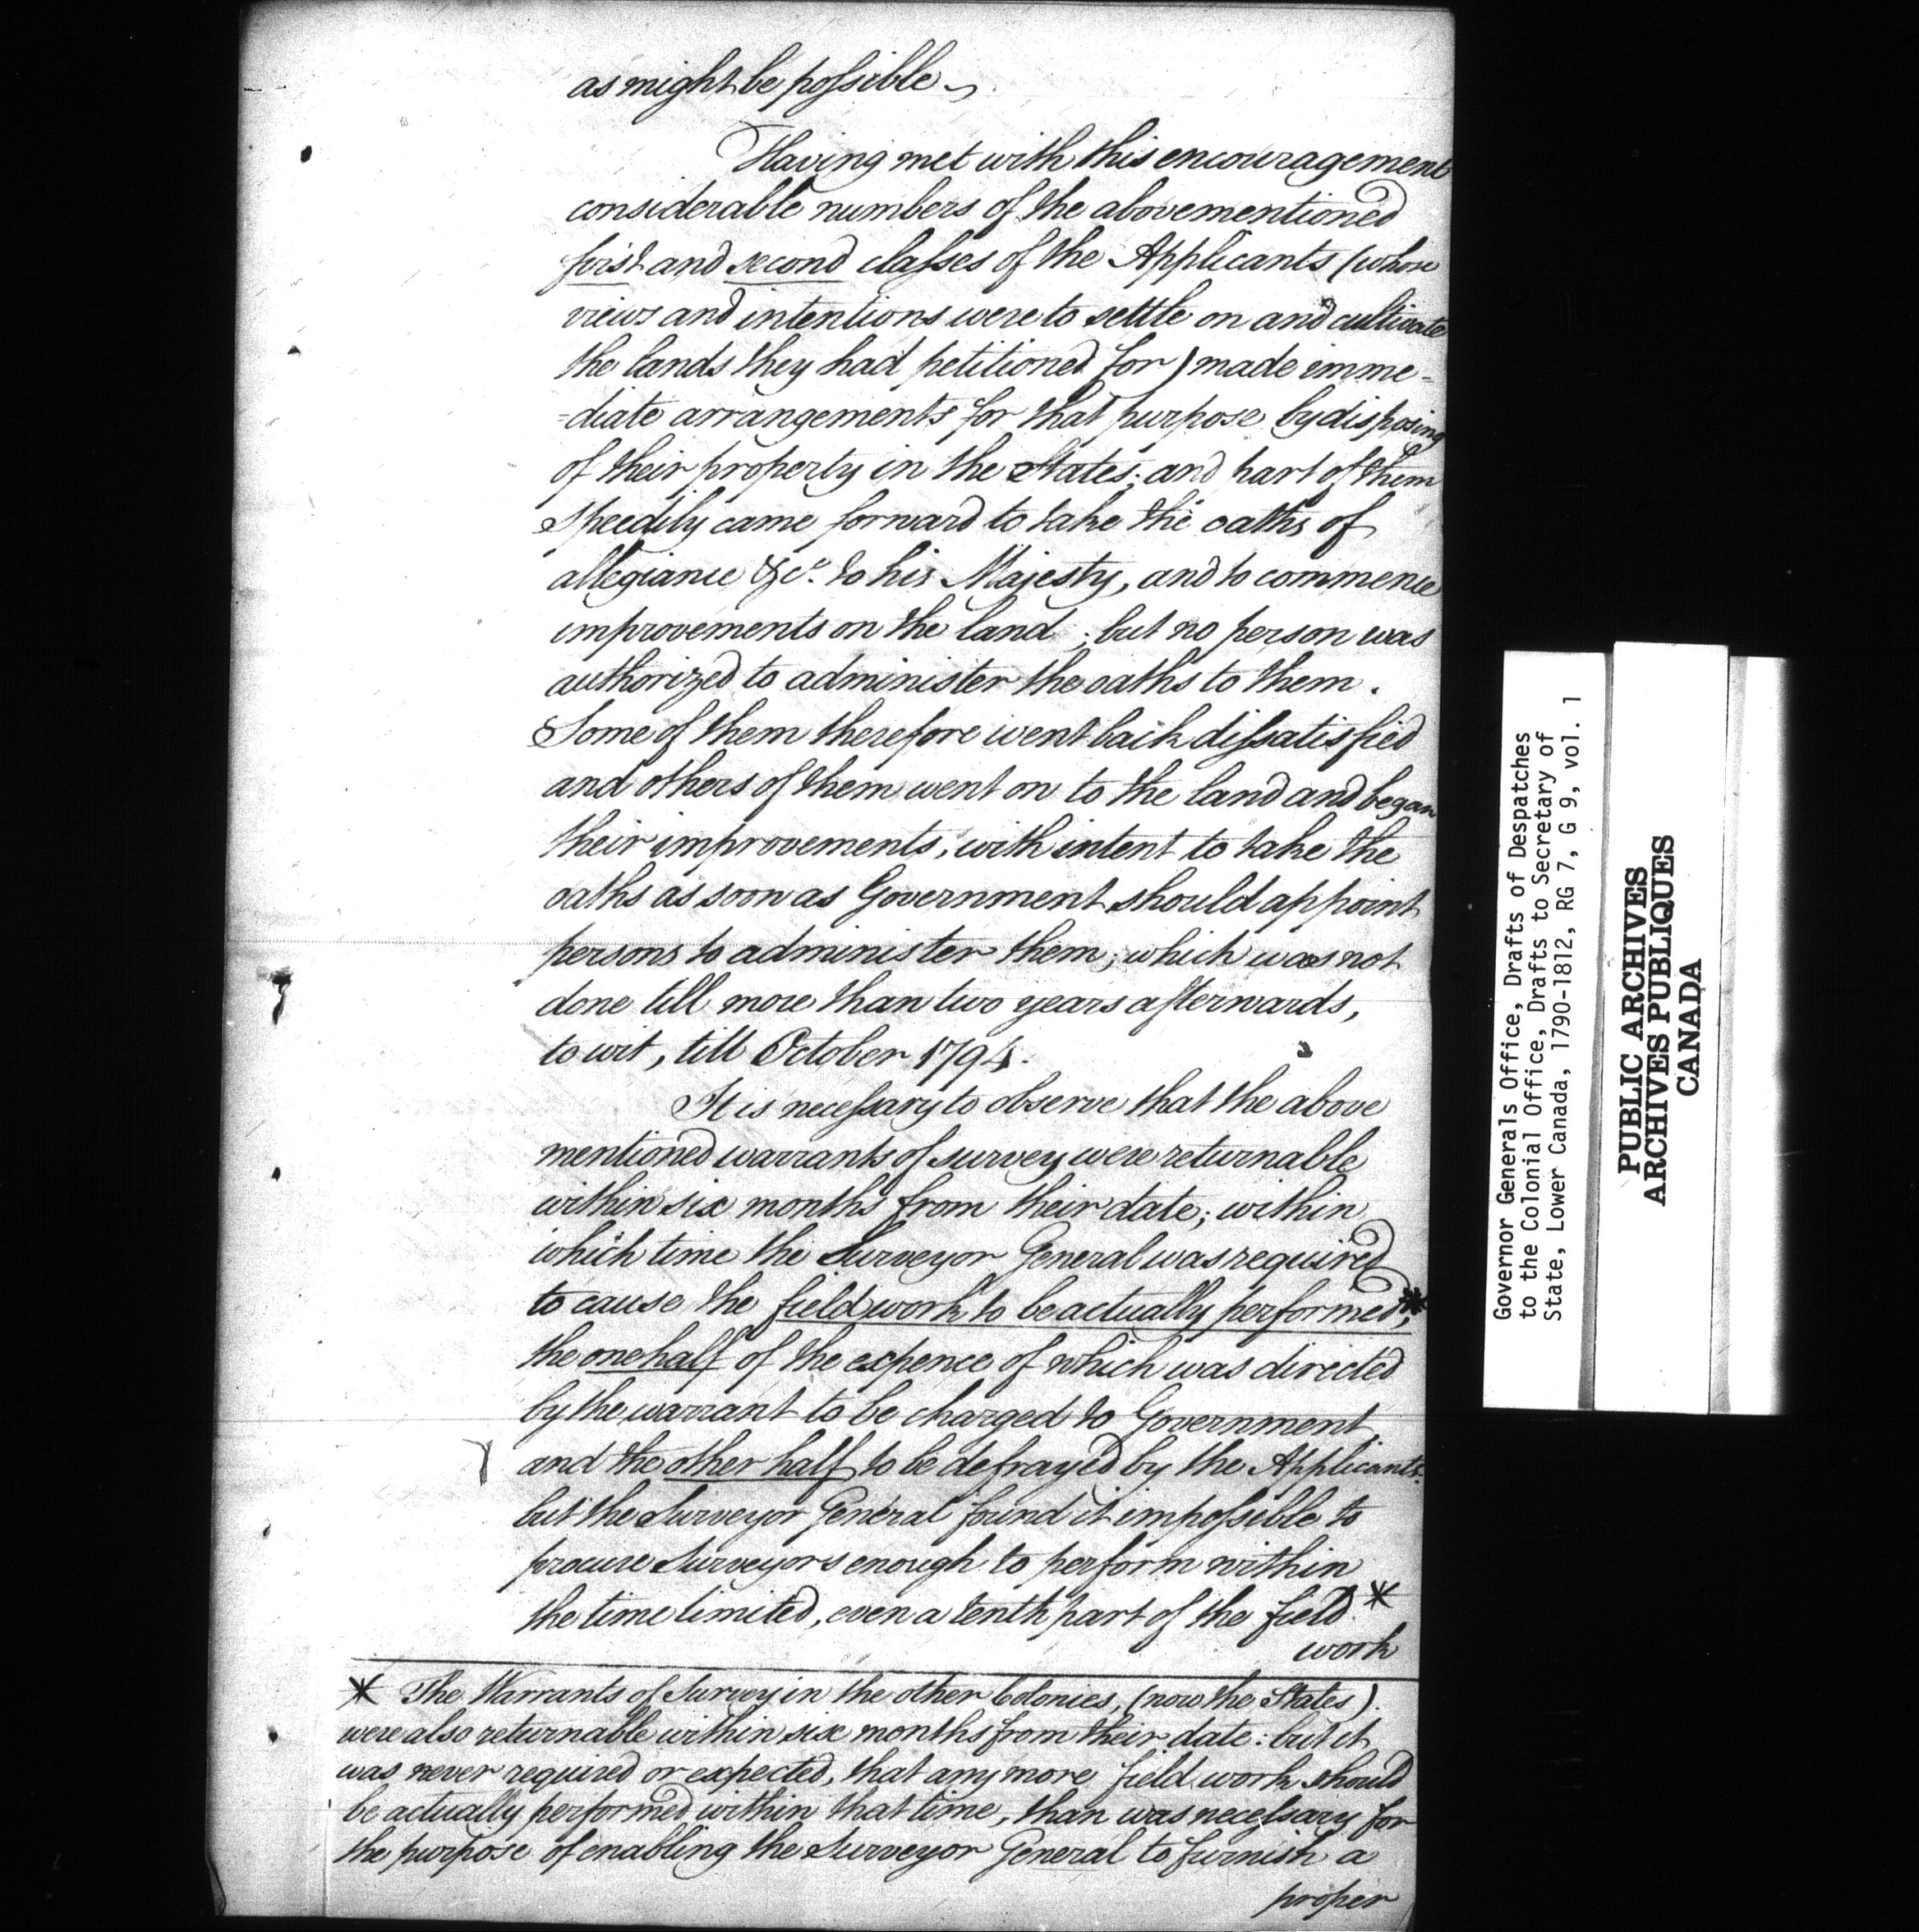 as might be possible
Having met with this encouragement
considerable numbers of the abovementioned
first and second classes of the Applicants (whose
views and intentions were to settle on and cultivate
the lands they had petitioned for) made imme-
-diate arrangements for that purpose by disposing
of their property in the States; and part of them
speedily came forward to take the oaths of
allegiance &c. to his Majesty, and to commence
improvements on the land; but no person was
authorized to administer the oaths to them.
Some of them therefore went back dissatisfied
and others of them went on to the land and began
their improvements, with intent to take the
oaths as soon as Government should appoint
persons to administer them; which was not
done till more than two years afterwards,
to wit, till October 1794.
It is necessary to observe that the above
mentioned warrants of survey were returnable
within six months from their date; within
which time the Surveyor General was required
to cause the field work to be actually performed*;
the one half of the expence of which was directed
by the warrant to be charged to Government
and the other half to be defrayed by the Applicants.
but the Surveyor General found it impossible to
procure Surveyors enough to perform within
the time limited, even a tenth part of the field *
work
* The Warrants of Survey in the other Colonies, (now the States)
were also returnable within six months from their date: but it
was never required or expected, that any more field work should
be actually performed within that time, than was necessary for
the purpose of enabling the Surveyor General to furnish a
proper
Governor Generals Office, Drafts of Despatches
to the Colonial Office, Drafts to Secretary of
State, Lower Canada, 1790-1812, RG 7, G 9, vol. 1
PUBLIC ARCHIVES
ARCHIVES PUBLIQUES
CANADA